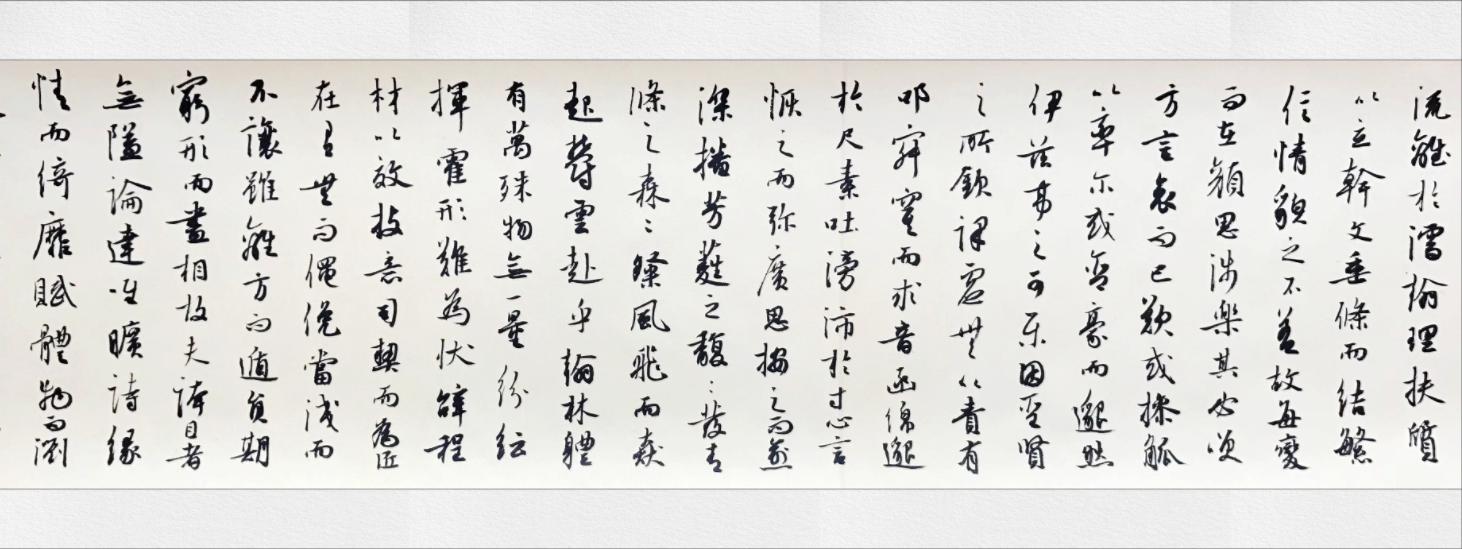 流離於濡翰理扶質
以立幹文垂條而結繁
信情貌之不差故每變
而在顏思涉樂其必笑
方言哀而已歎或操觚
以率尔或含豪而邈然
伊茲事之可樂因聖賢
之所欽課虛無以責有
叩寂寞而求音函綿邈
於尺素吐滂沛於寸心言
恢之而弥廣思按之而逾
深播芳蕤之馥〻發青
條之森〻粲風飛而猋
起欝雲赴乎翰林體
有萬殊物無一量紛紜
揮霍形難為状辭程
材以效技意司契而為匠
在有無而僶俛當淺而
不讓雖離方而遁員期
窮形而盡相故夫誇目者
無隘論達唯曠詩緣
情而綺靡賦體物而瀏